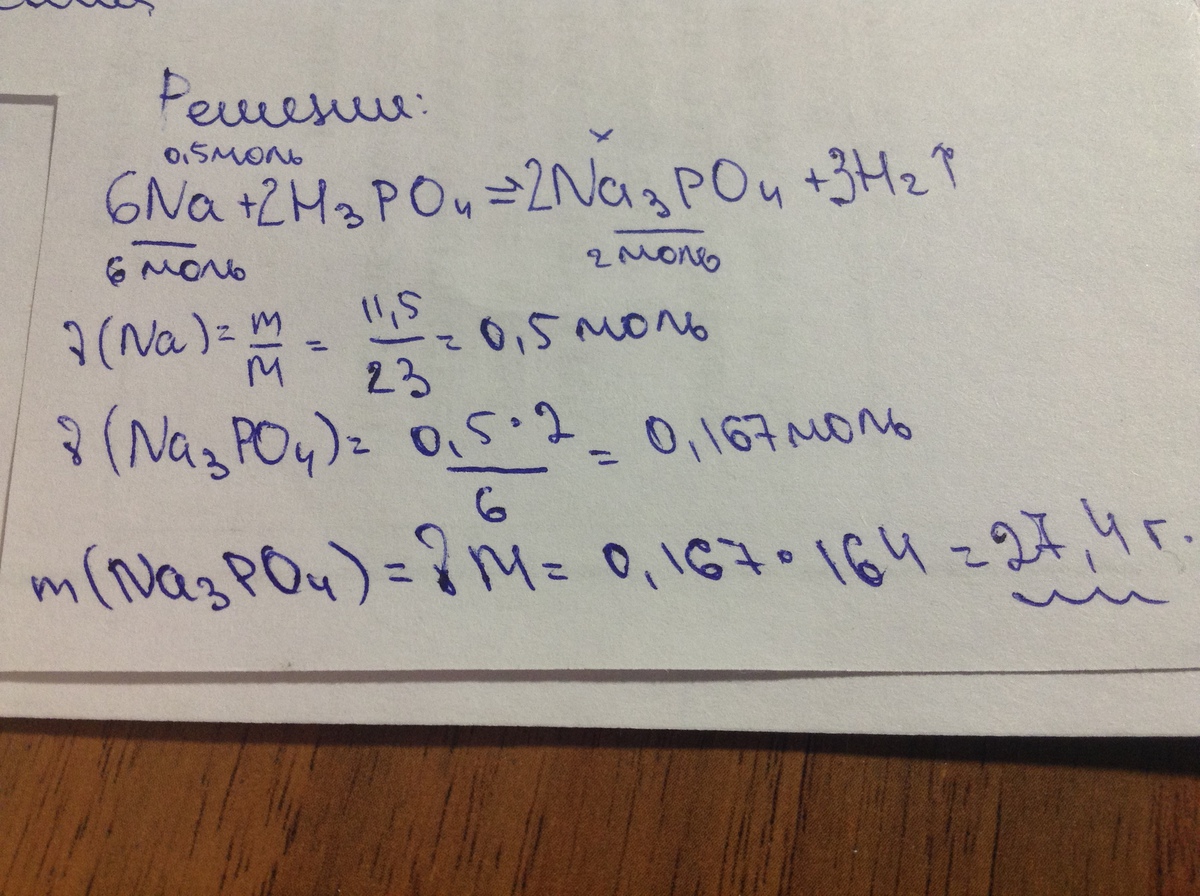 Решение:
0,5 моль x
6Na + 2H₃PO₄ => 2Na₃PO₄ + 3H₂↑
6 моль 2 моль
ν(Na) = m/M = 11,5/23 = 0,5 моль
ν(Na₃PO₄) = 0,5·2/6 = 0,167 моль
m(Na₃PO₄) = νM = 0,167·164 = 27,4 г.